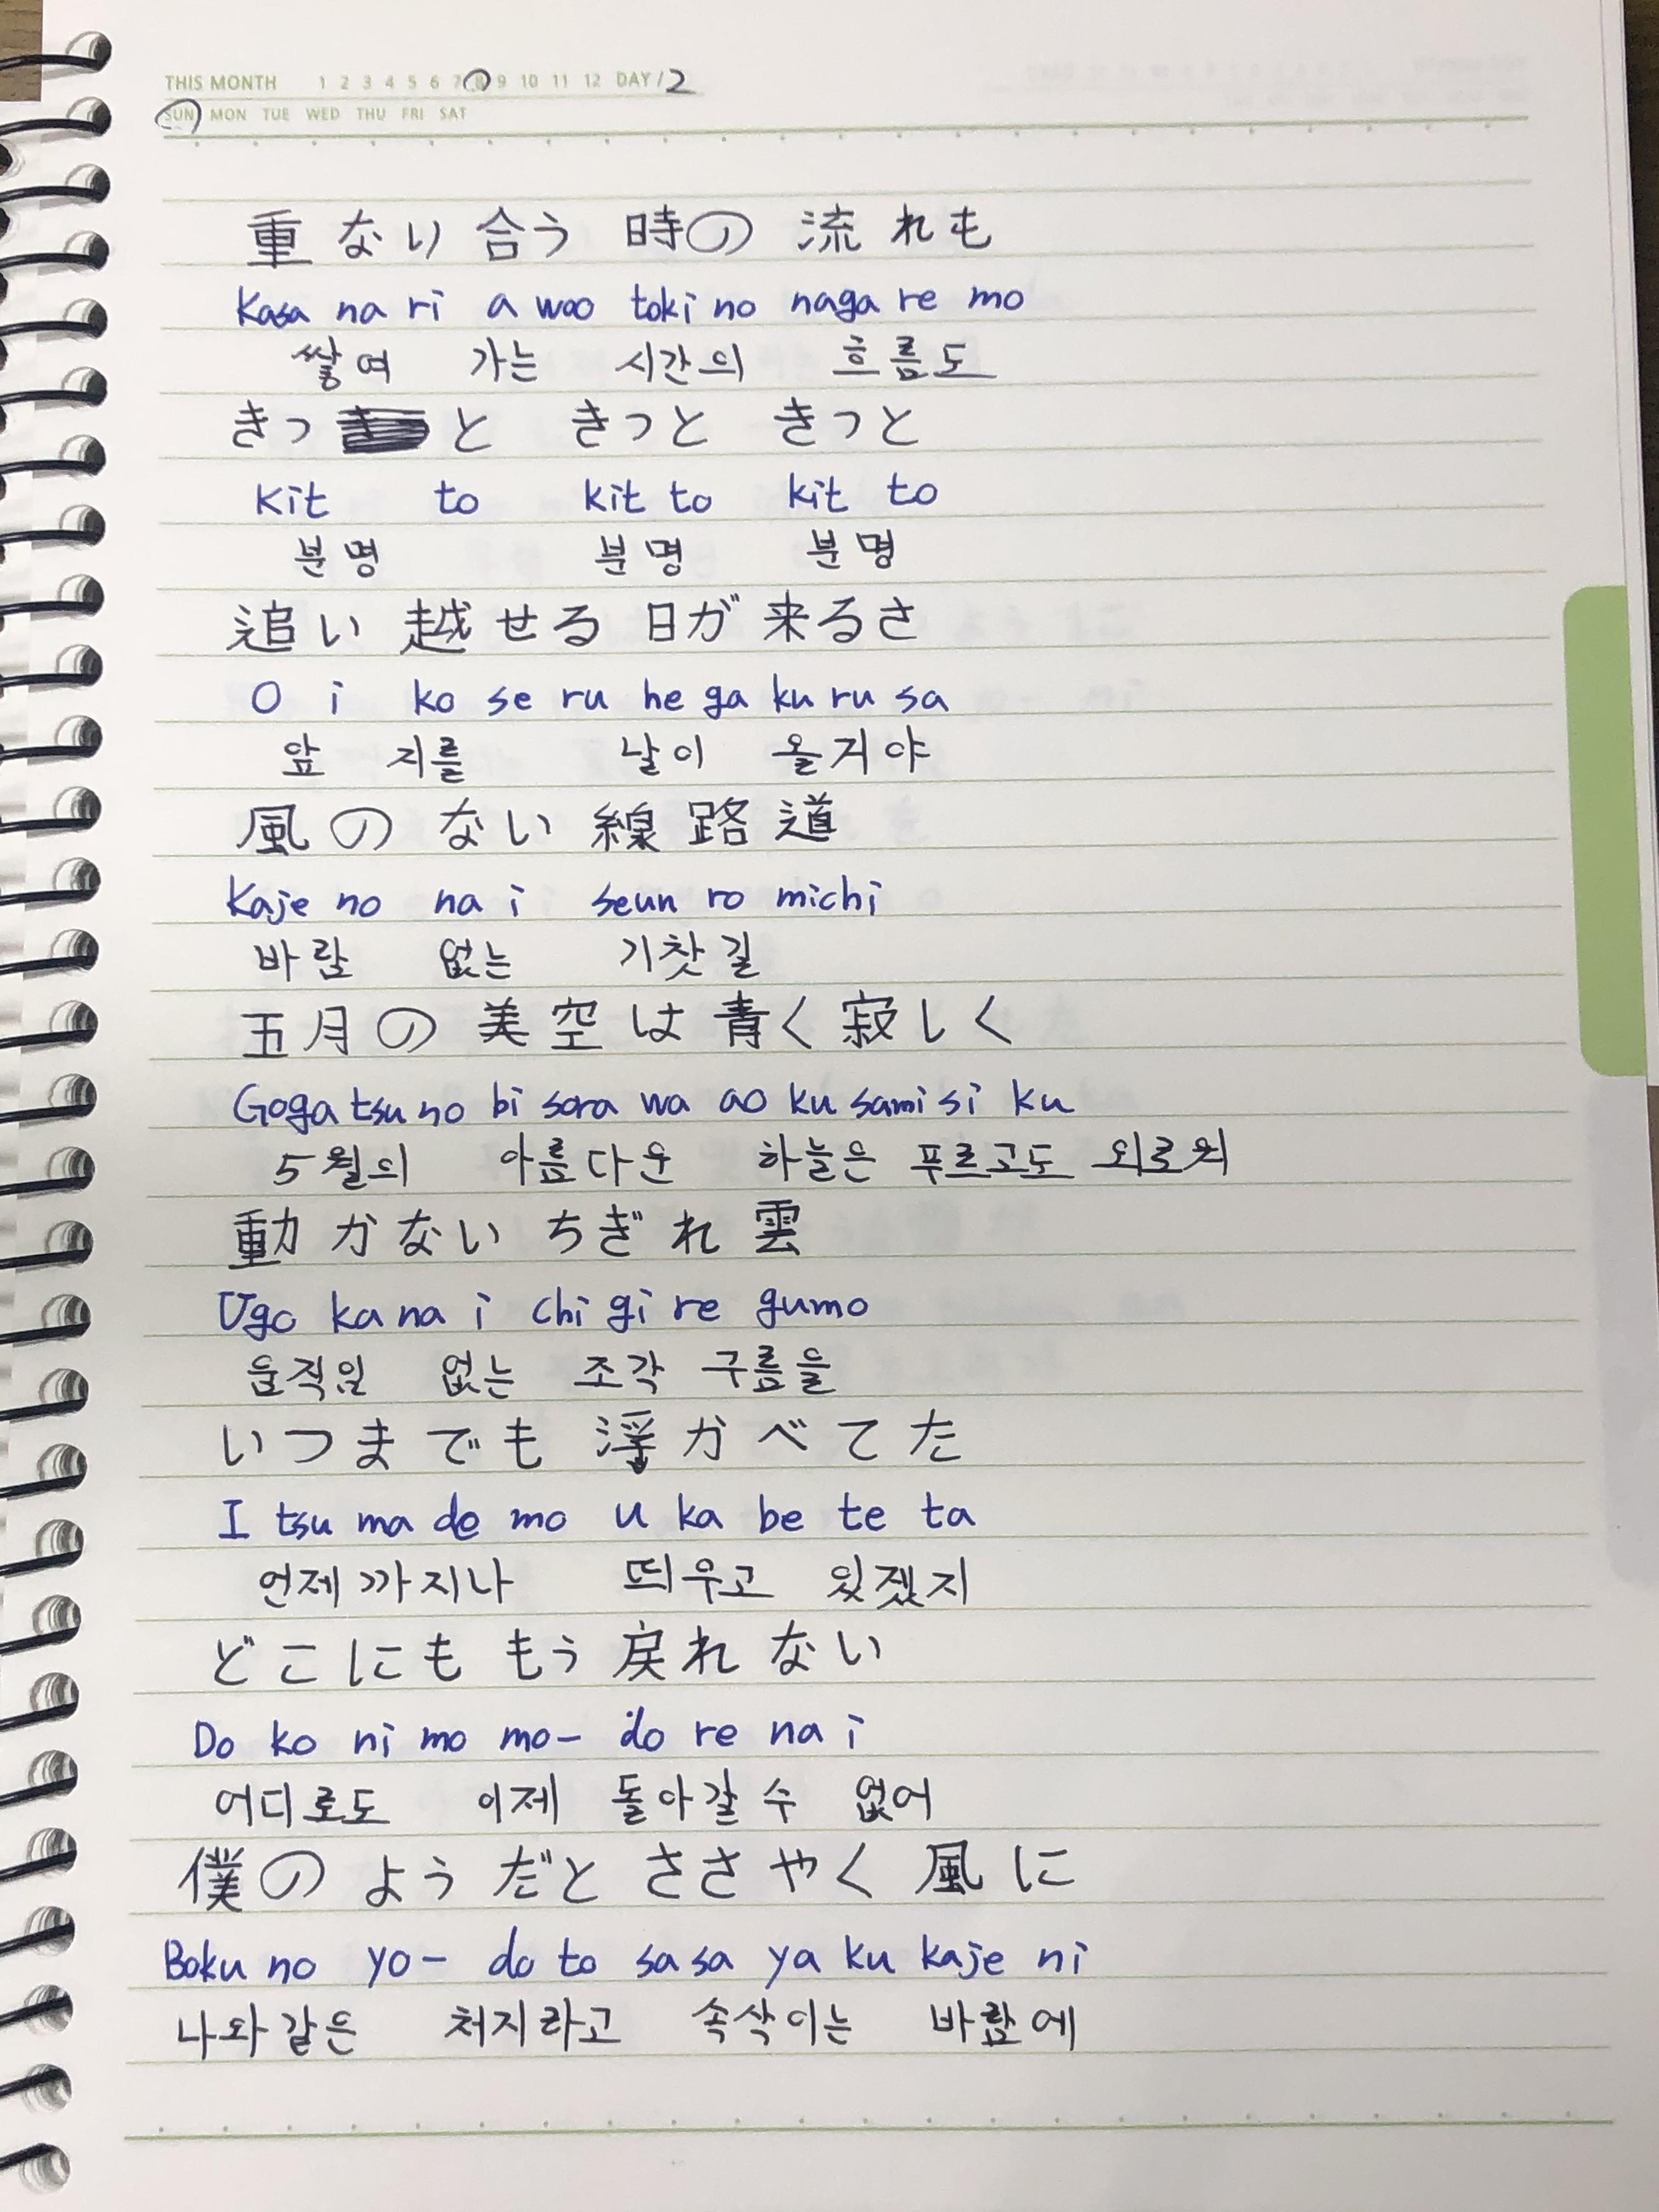 THIS MONTH 1 2 3 4 5 6 7 8 9 10 11 12 DAY / 2
SUN MON TUE WED THU FRI SAT
重ない合う 時の 流れも
Kasa na ri a woo toki no naga re mo
쌓여 가는 시간의 흐름도
きっと きっと きっと
Kit to kit to kit to
분명 분명 분명
追い越せる 日が来るさ
O i ko se ru he ga ku ru sa
앞 지를 날이 올거야
風の ない 線路道
Kaje no na i seun ro michi
바람 없는 기찻길
五月の 美空は 青く寂しく
Goga tsu no bi sora wa ao ku sami si ku
5월의 아름다운 하늘은 푸르고도 외로워
動かない ちぎれ雲
Ugo ka na i chi gi re gumo
움직임 없는 조각 구름을
いつまでも 浮かべてた
I tsu ma de mo u ka be te ta
언제까지나 띄우고 있겠지
どこにも もう 戻れない
Do ko ni mo mo- do re na i
어디로도 이제 돌아갈 수 없어
僕の ようだと ささやく 風に
Boku no yo- do to sa sa ya ku kaje ni
나와 같은 처지라고 속삭이는 바람에